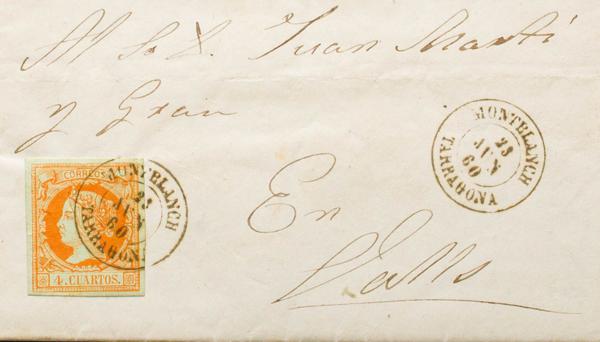 Al Sr. D. Juan Martí
y Grau
MONTBLANCH
28
JUN
60
TARRAGONA
CORREOS
4. CUARTOS.
MONTBLANCH
28
JUN
60
TARRAGONA
En
Valls